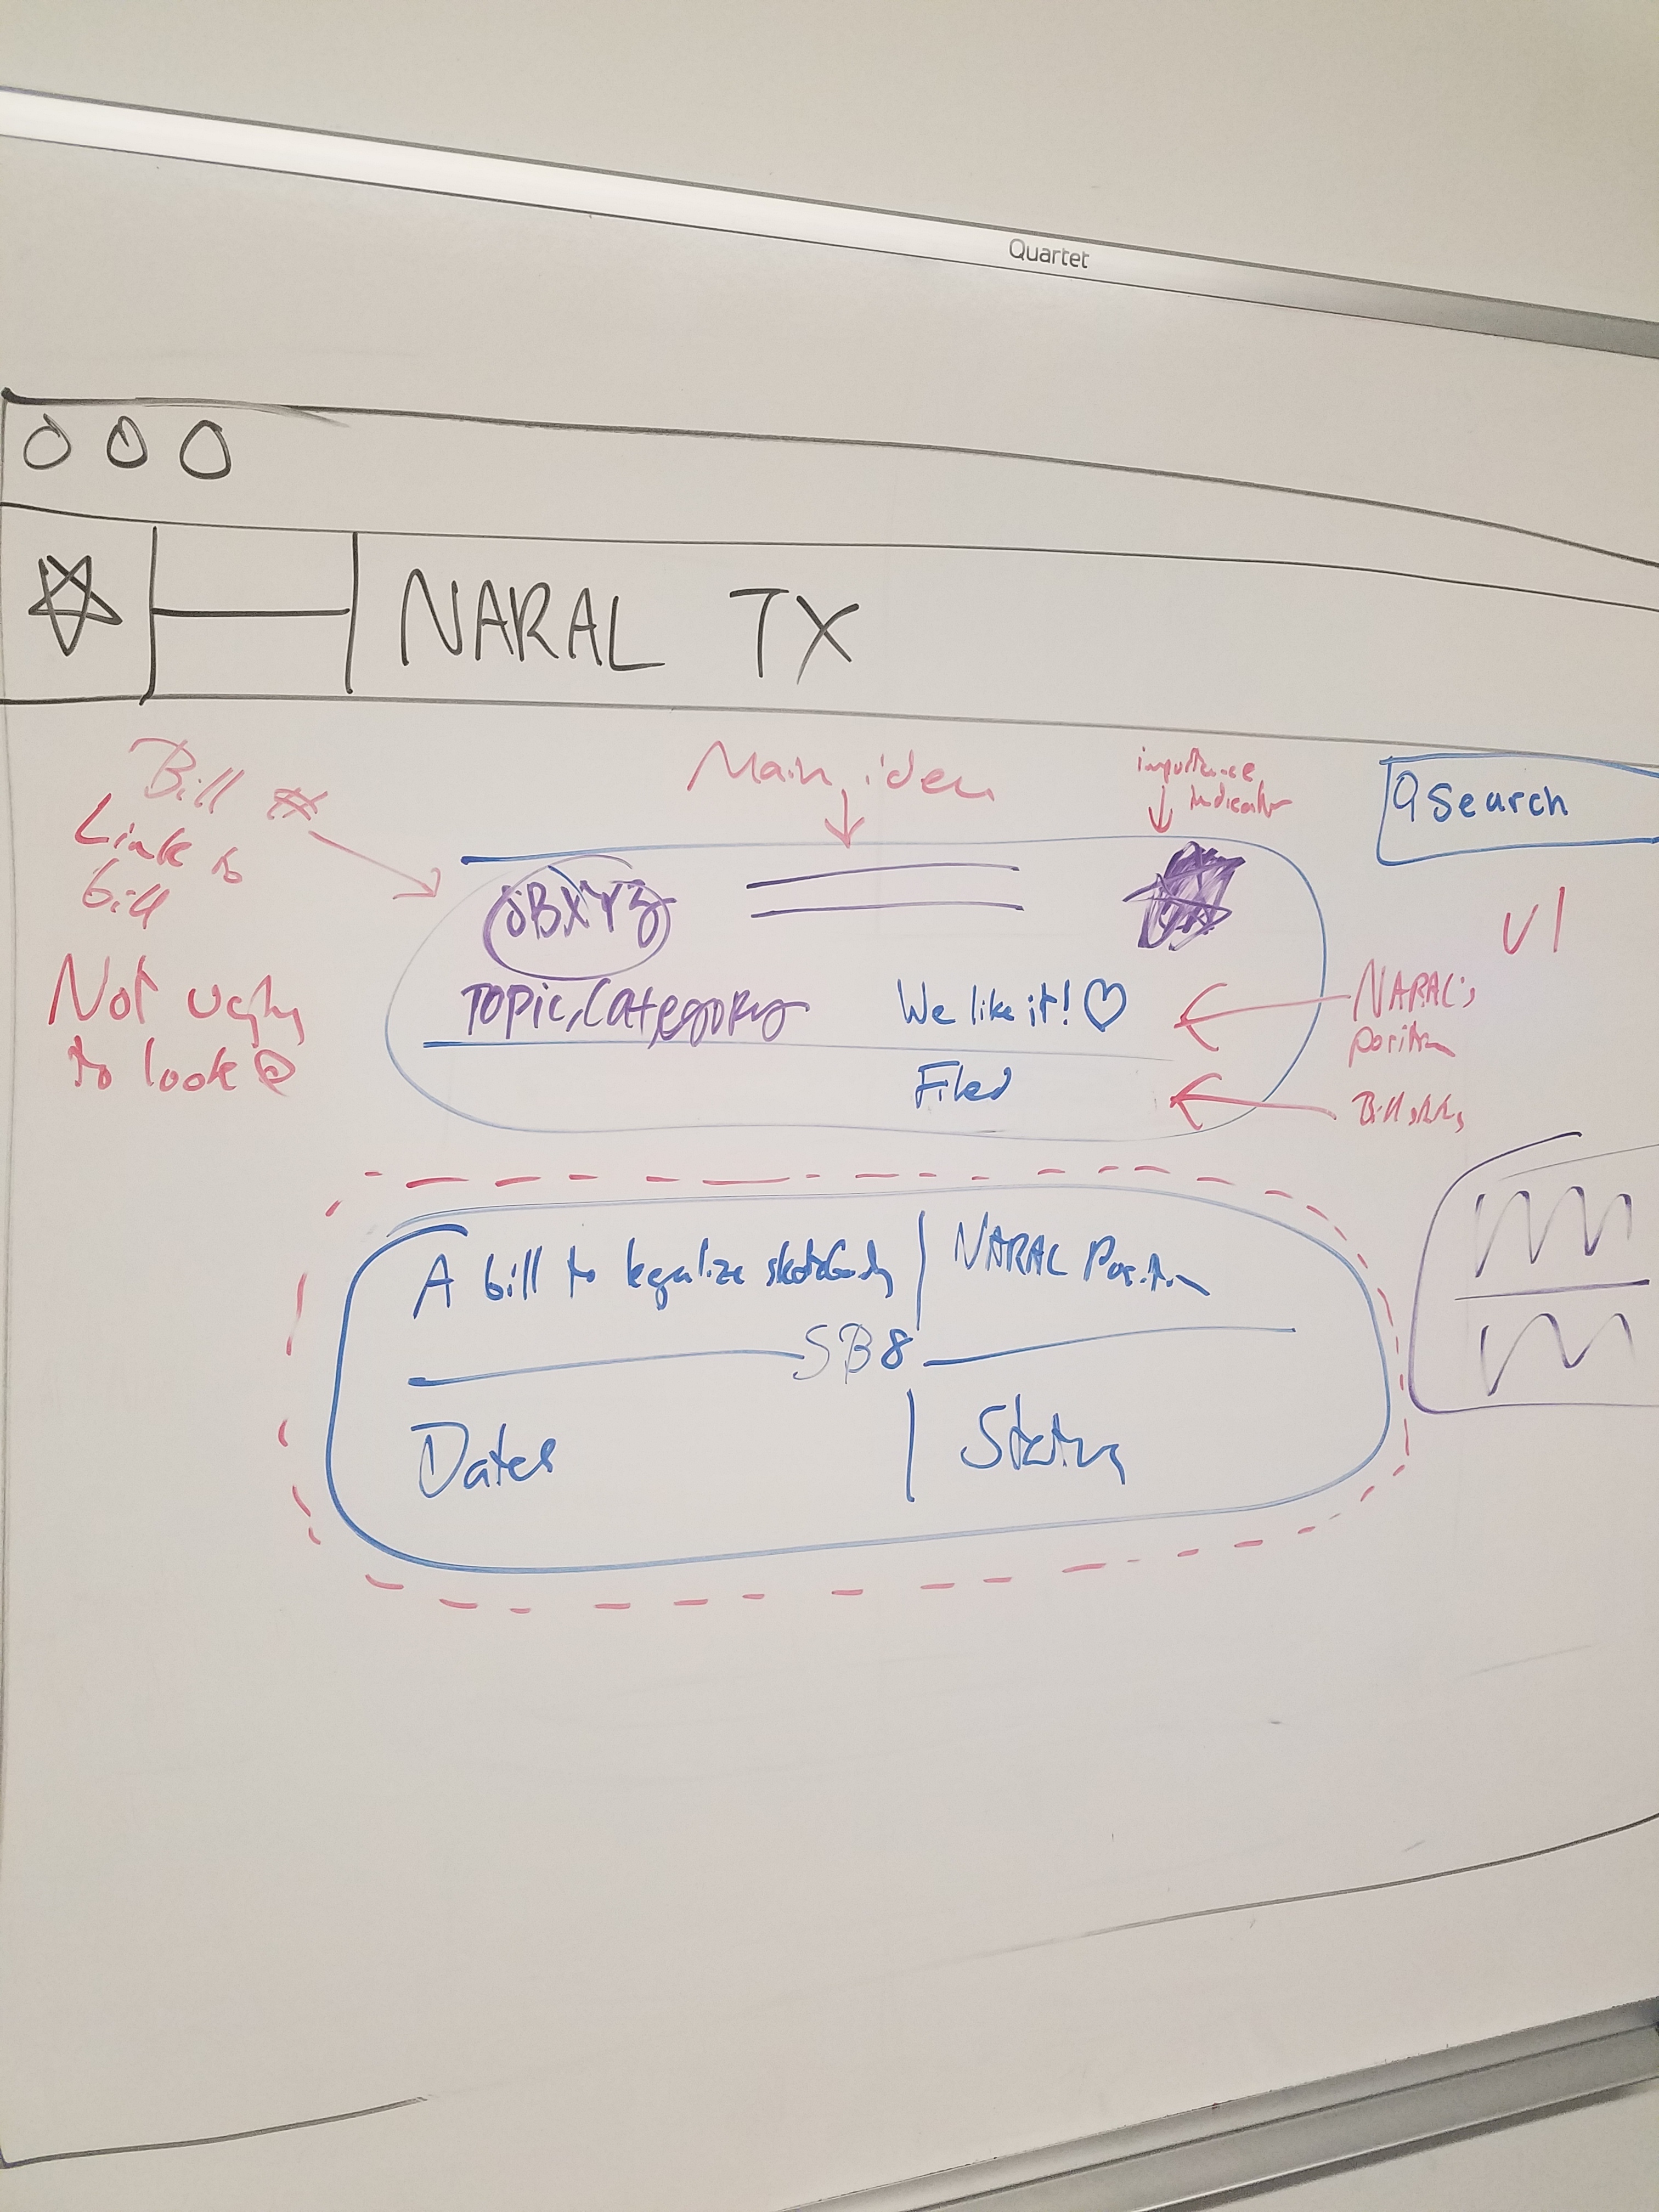 Quartet
NARAL TX
Bill #
Link to
bill
Not ugly
to look @
Main idea
importance
indicator
Search
v1
SBXYZ
Topic/Category
We like it! ♡
Filed
NARAL's
position
Bill status
A bill to legalize
NARAL Position
SB8
Dates
Status